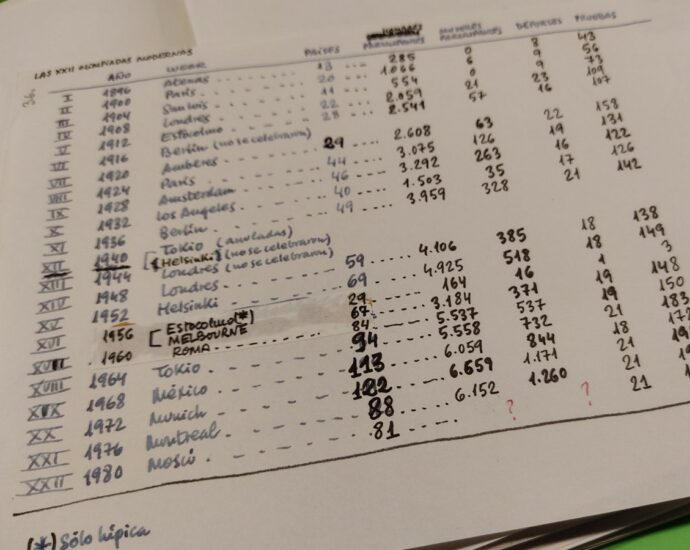 36.
LAS XXII OLIMPIADAS MODERNAS
AÑO LUGAR PAÍSES PARTICIPANTES MUJERES PARTICIPANTES DEPORTES PRUEBAS
I 1896 Atenas 13 285 0 8 43
II 1900 París 20 1.066 6 9 56
III 1904 San Luis 11 554 0 9 73
IV 1908 Londres 22 2.059 21 23 109
V 1912 Estocolmo 28 2.541 57 16 107
1916 Berlín (no se celebraron)
VII 1920 Amberes 29 2.608 63 22 158
VIII 1924 París 44 3.075 126 19 131
IX 1928 Amsterdam 46 3.292 263 16 122
X 1932 Los Angeles 40 1.503 35 17 126
XI 1936 Berlín 49 3.959 328 21 142
XII 1940 [Tokio (anuladas)
Helsinki (no se celebraron)
XIII 1944 Londres (no se celebraron)
XIV 1948 Londres 59 4.106 385 18 138
XV 1952 Helsinki 69 4.925 518 18 149
XVI 1956 [ESTOCOLMO(*) 29 164 16 1 3
MELBOURNE 67 3.184 371 19 148
XVII 1960 ROMA 84 5.537 537 19 150
XVIII 1964 Tokio 94 5.558 732 21 183
XIX 1968 México 113 6.059 844 18 172
XX 1972 Munich 6.659 1.171 21
XXI 1976 Montreal 88 6.152 1.260 21
XXII 1980 Moscú 81 ? ? 21
(*) Sólo hípica